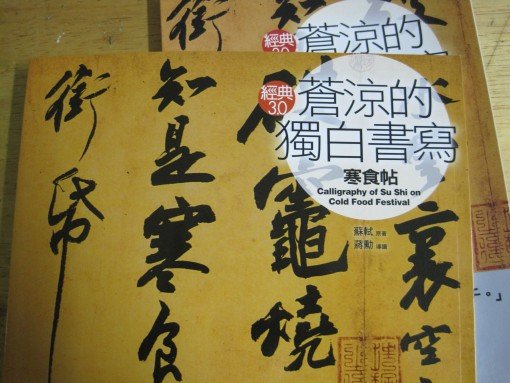 經典
蒼涼的
經典
3.0
蒼涼的
獨白書寫
寒食帖
Calligraphy of Su Shi on
Cold Food Festival
蘇軾 原著
蔣勳 導讀
裏空
竈燒
知是寒食
銜帋